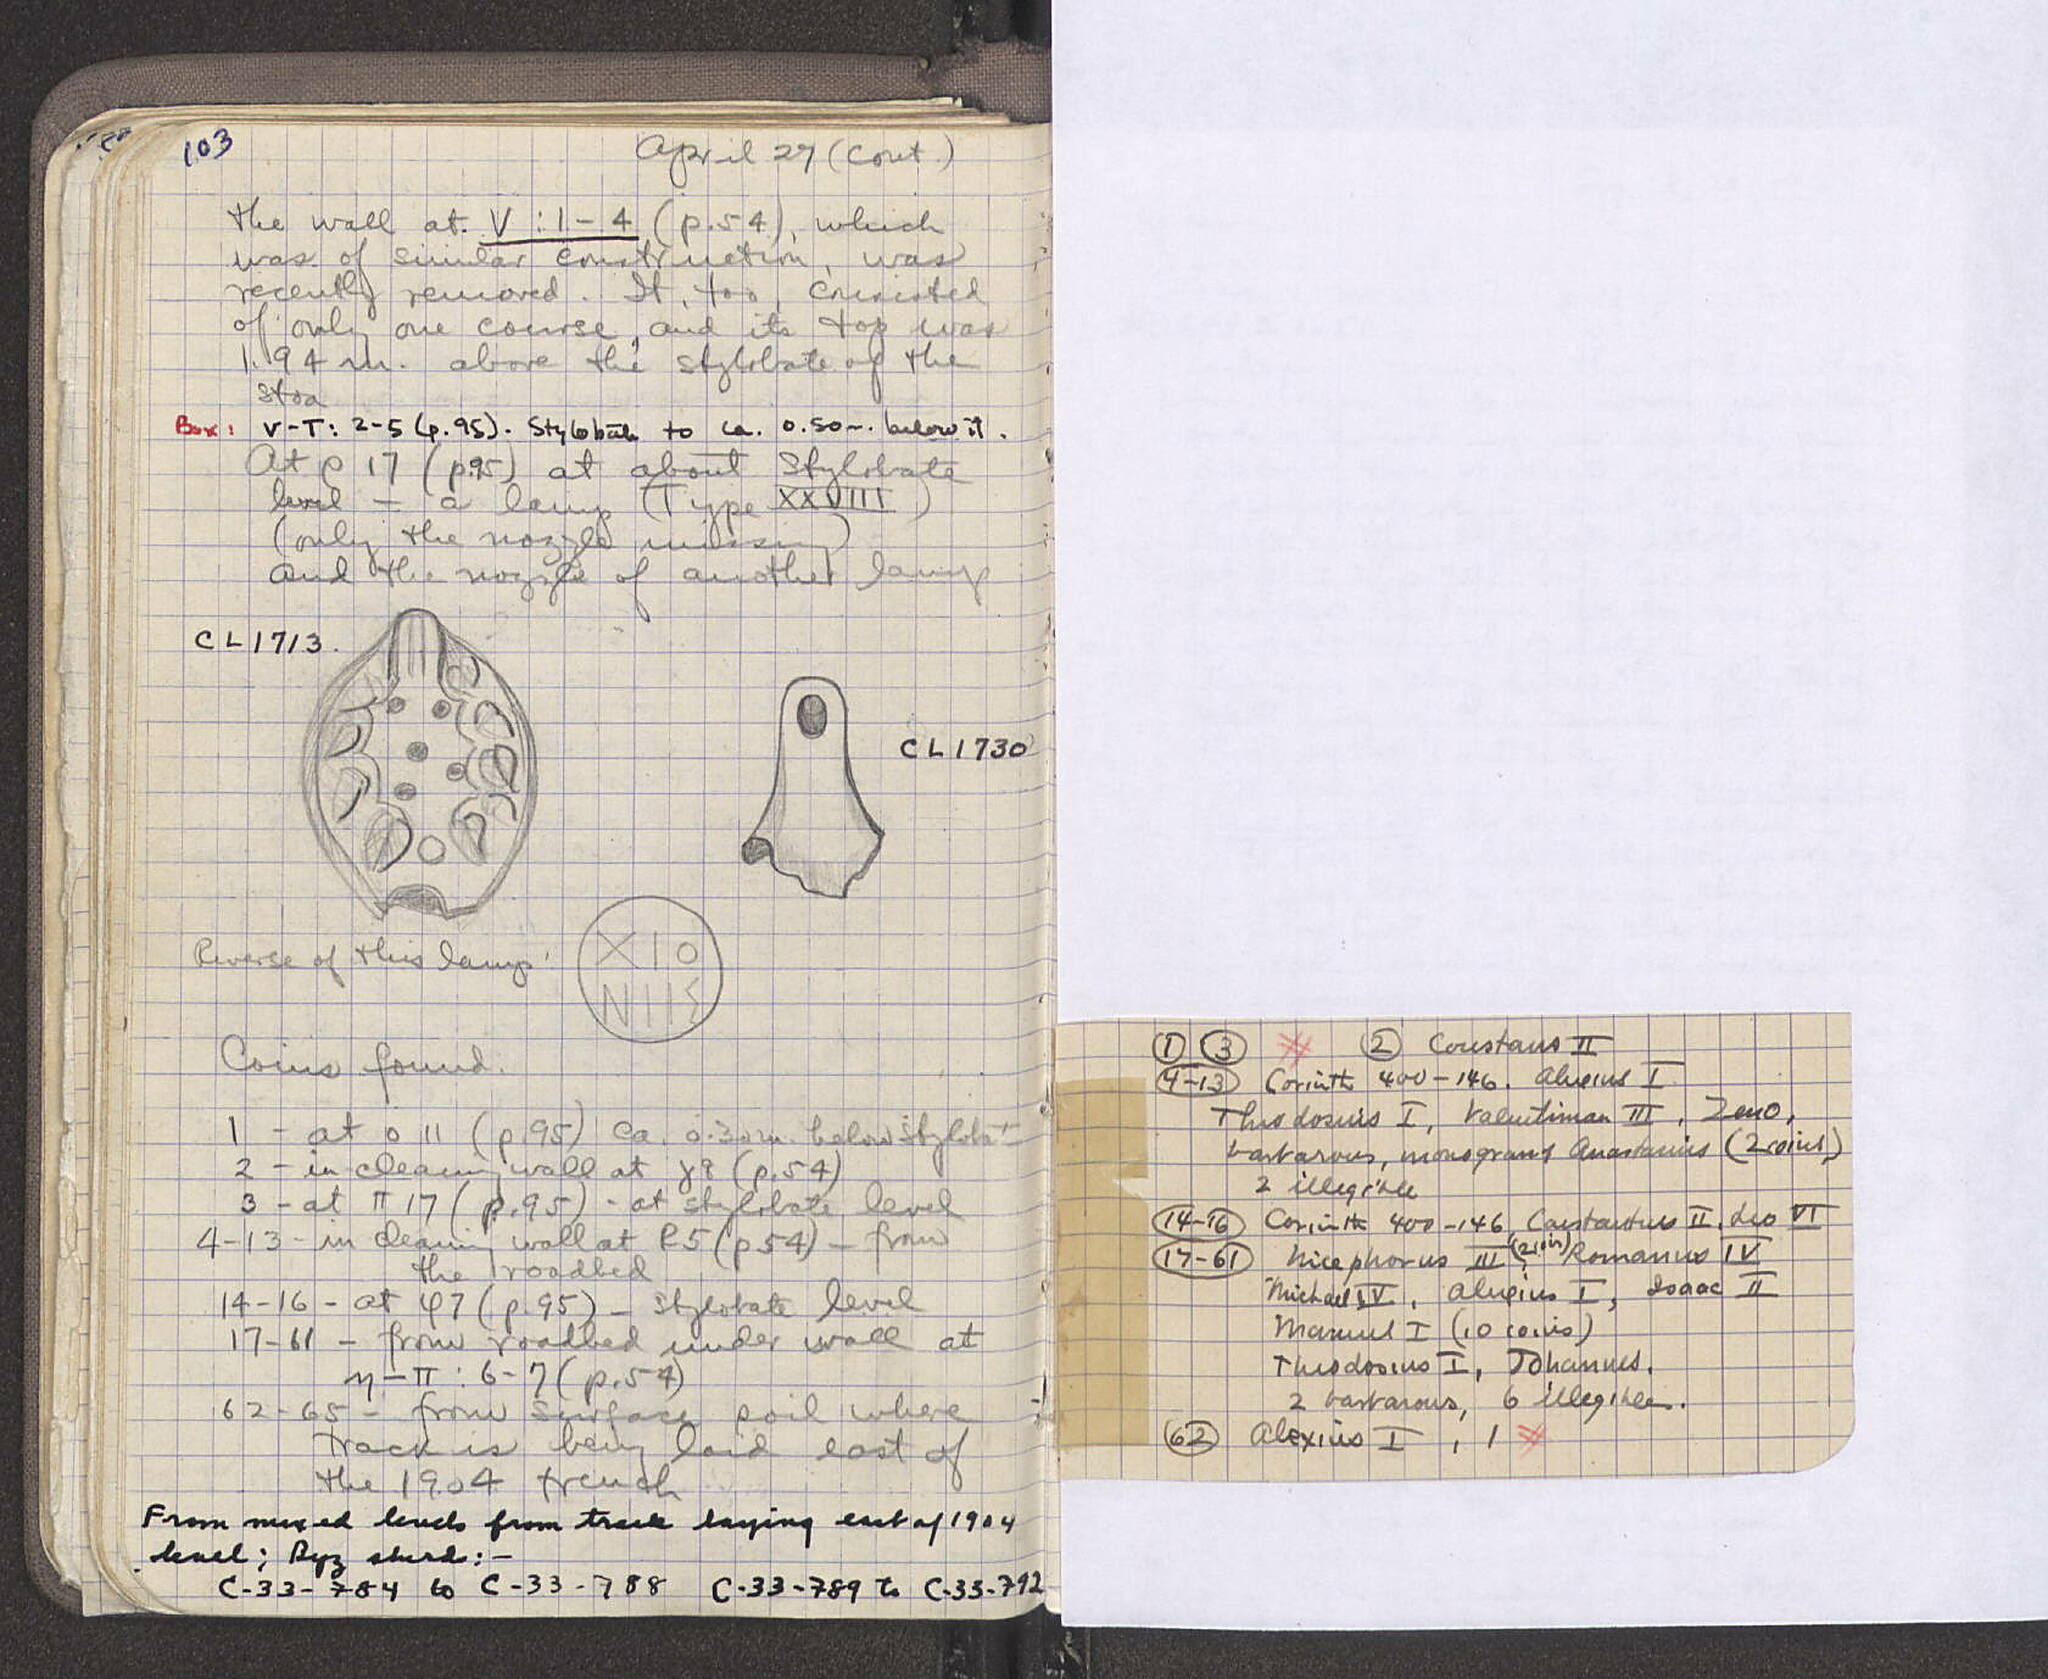 103
April 27 (cont.)
the wall at V : 1 - 4 (p. 54), which
was of similar construction, was
recently removed. It, too, consisted
of only one course, and its top was
1.94 m. above the stylobate of the
stoa
Box: V-T: 2-5 (p. 95). Stylobate to ca. 0.50 m. below it.
At ρ 17 (p. 95) at about stylobate
level - a lamp (Type XXVIII)
(only the nozzle missing)
and the nozzle of another lamp
CL1713.
CL1730
Reverse of this lamp:
ΧΙΟ
ΝΙΙΣ
Coins found.
1 - at ο 11 (p. 95) ca. 0.30 m. below stylobate
2 - in cleaning wall at γ9 (p. 54)
3 - at π 17 (p. 95) - at stylobate level
4-13 - in cleaning wall at P5 (p 54) - from
the roadbed
14-16 - at φ7 (p. 95) - stylobate level
17-61 - from roadbed under wall at
η - π : 6-7 (p. 54)
62-65 - from surface soil where
track is being laid east of
the 1904 trench
From mixed levels from track laying east of 1904
level; Byz sherd: -
C-33-784 to C-33-788 C-33-789 to C-33-792
1 3 2 Constans II
4-13 Corinth 400-146. Alexius I
Theodosius I, Valentinian III, Zeno,
barbarous, monogram of Anastasius (2 coins)
2 illegible
14-16 Corinth 400-146, Constantius II, Leo VI
17-61 Nicephorus III (2 coins), Romanus IV
Michael IV, Alexius I, Isaac II
Manuel I (10 coins)
Theodosius I, Johannes.
2 barbarous, 6 illegible.
62 Alexius I, 1